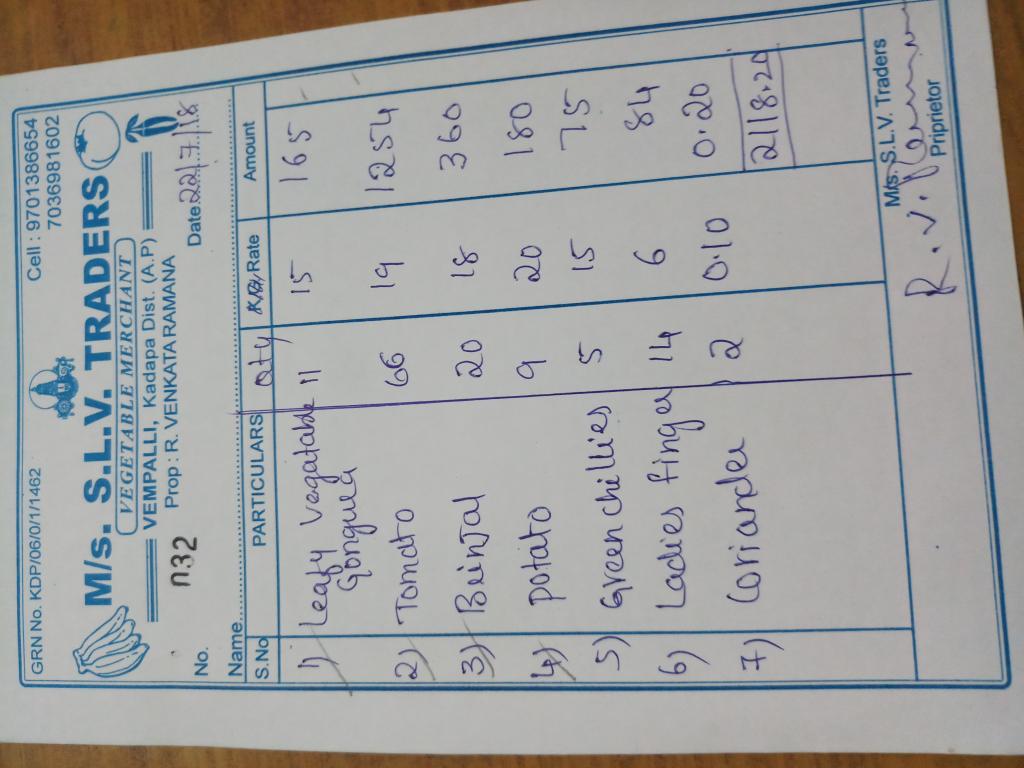 GRN No. KDP/06/0/1/1462 Cell : 9701386654
7036981602
M/s. S.L.V. TRADERS
VEGETABLE MERCHANT
VEMPALLI, Kadapa Dist. (A.P)
Prop : R. VENKATA RAMANA
No. 032 Date 22/7/18
Name
S.No PARTICULARS Qty Rate Amount
1) Leafy Vegatable 11 15 165
Gongura
2) Tomato 66 19 1254
3) Brinjal 20 18 360
4) potato 9 20 180
5) Green chillies 5 15 75
6) Ladies finger 14 6 84
7) Coriander 2 0.10 0.20
2118.20
M/s. S.L.V. Traders
R. V.
Priprietor